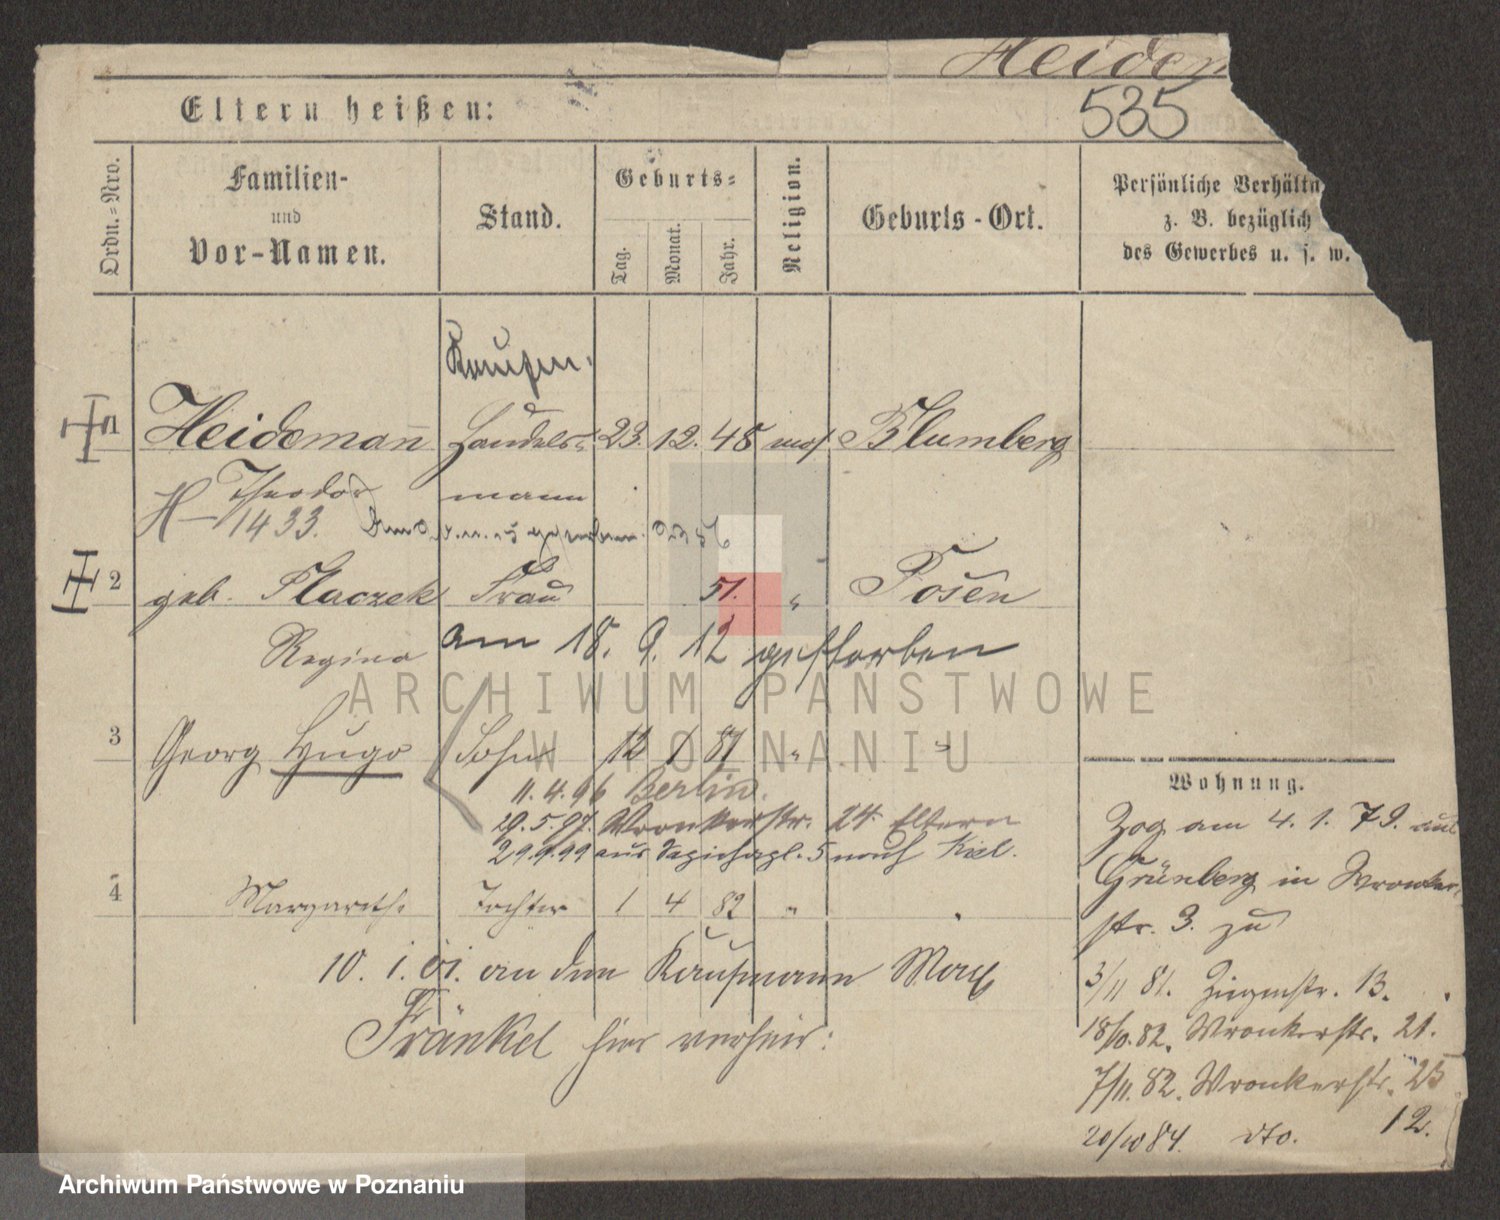 Heidem
535
Eltern heißen:
Ordn.-Nro.
Familien-
und
Vor-Namen.
Stand.
Geburts-
Tag.
Monat.
Jahr.
Religion.
Geburts-Ort.
Persönliche Verhältn
z. B. bezüglich
des Gewerbes u. s. w.
Kaufm.
1 Heidemann Handels- 23. 12. 45 mos. Blumberg
Theodor mann
H- 1433.
2 geb. Placzek Frau 51. " Posen
Regina am 18. 9. 12 gestorben
3 Georg Hugo Sohn 12 1 81 " "
11. 4. 96 Berlin.
29. 5. 97. Wronkerstr. 24 Eltern
29.9.99 aus Sapiehapl. 5 nach Kiel.
4 Margarethe Tochter 1 4 82 "
10. 1. 01. an den Kaufmann Max
Fränkel hier verheir:
Wohnung.
Zog am 4. 1. 79. aus
Grünberg in Wronker-
str. 3. zu
3/11 81. Ziegenstr. 13.
18/10. 82. Wronkerstr. 21.
7/11. 82. Wronkerstr. 25
20/10 84. dto. 12.
ARCHIWUM PAŃSTWOWE
W POZNANIU
Archiwum Państwowe w Poznaniu